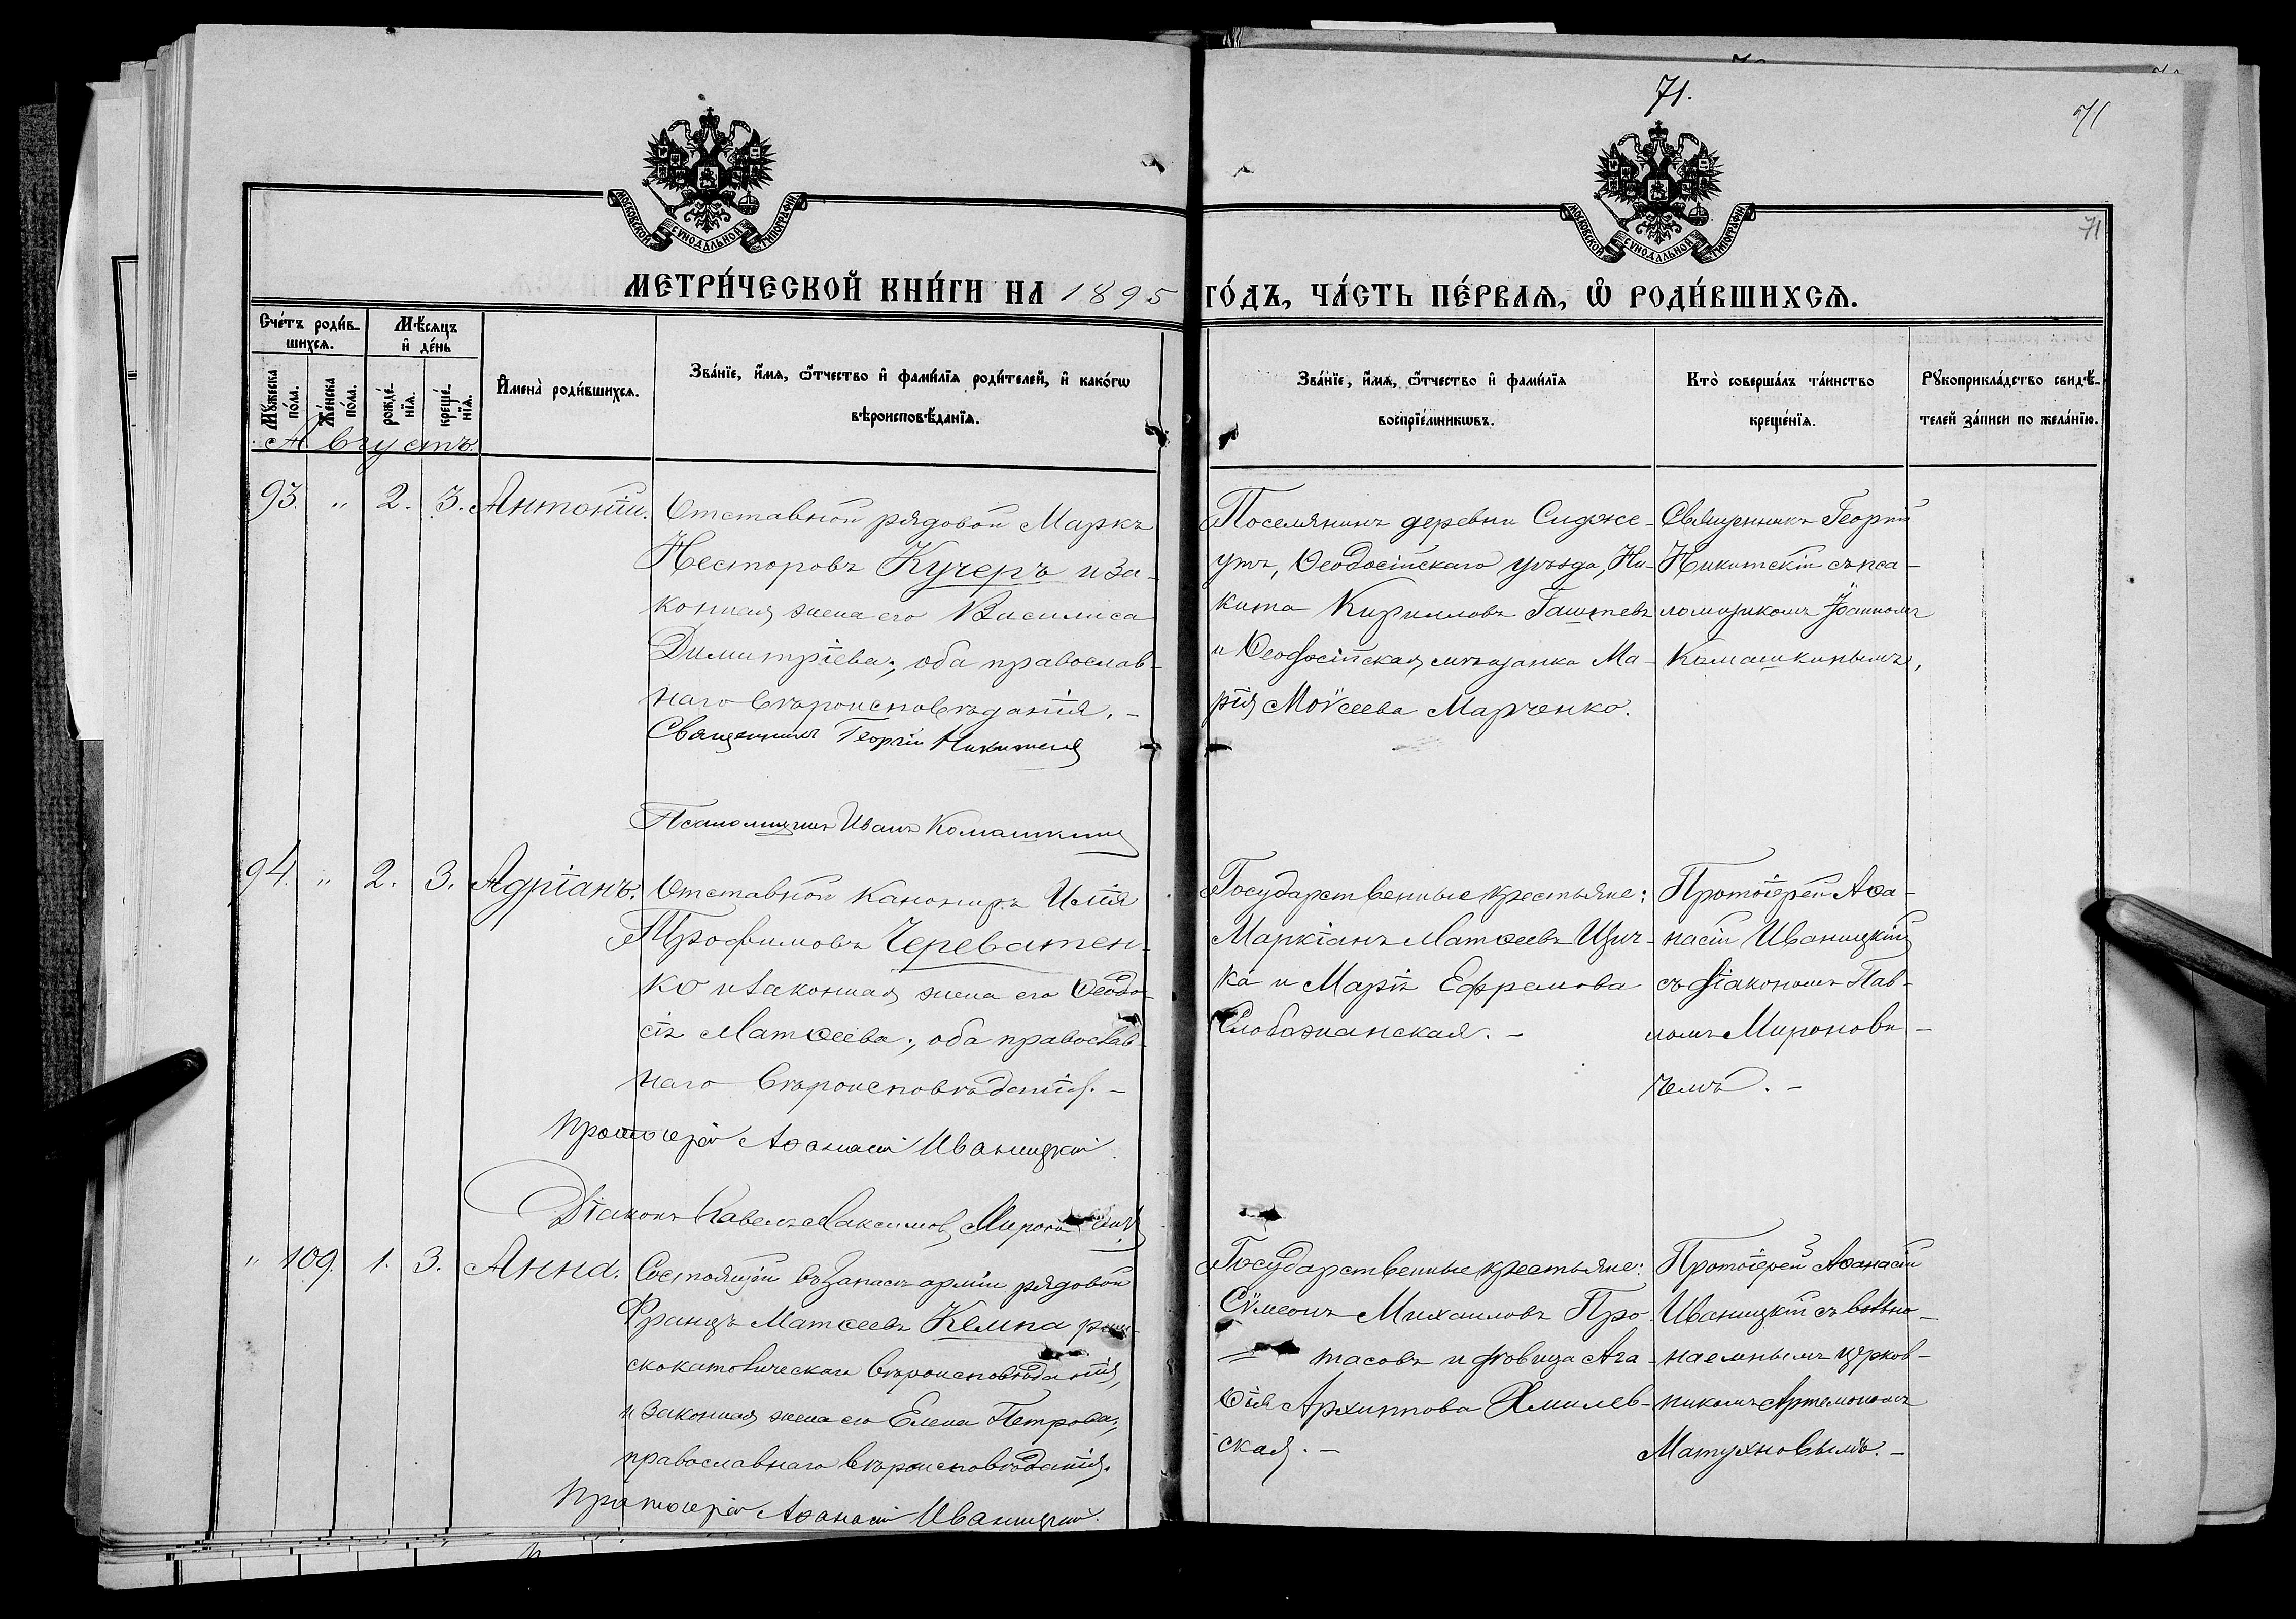 71.
71
71
МОСКОВСКОЙ СѴНОДАЛЬНОЙ ТИПОГРАФІИ
МОСКОВСКОЙ СѴНОДАЛЬНОЙ ТИПОГРАФІИ
МЕТРИ́ЧЕСКОЙ КНИ́ГИ НА 1895 ГО́ДЪ, ЧА́СТЬ ПЕ́РВАЯ, Ѽ РОДИ́ВШИХСЯ.
Сче́тъ роди́в-
шихся.
Мѣ́сяцъ
и҆ де́нь
Му́жеска
по́ла.
Же́нска
по́ла.
рожде́-
нїя.
креще́-
нїя.
И҆мена̀ роди́вшихся.
Зва́нїе, и҆́мя, ѻ҆́тчество и҆ фами́лїя роди́телей, и҆ како́гѡ
вѣроисповѣ́данїя.
Зва́нїе, и҆́мя, ѻ҆́тчество и҆ фами́лїя
воспрїе́мникѡвъ.
Кто̀ соверша́лъ та́инство
креще́нїя.
Рꙋкоприкла́дство свидѣ́-
телей за́писи по жела́нїю.
Августъ.
93. " 2. 3. Антоній.
Отставной рядовой Маркъ
Несторовъ Кучеръ и за-
конная жена его Василиса
Димитріева; оба православ-
наго вѣроисповѣданія. -
Священникъ Георгій Никитскій
Псаломщикъ Иванъ Комашкинъ
Поселянинъ деревни Сидже-
утъ, Ѳеодосійскаго уѣзда, Ни-
кита Кирилловъ Гаштевъ
и Ѳеодосійская мѣщанка Ма-
рія Моѵсеева Марченко.
Священникъ Георгій
Никитскій съ пса-
ломщикомъ Іоанномъ
Комашкинымъ,
94. " 2. 3. Адріанъ.
Отставной канониръ Илія
Трофимовъ Череватен-
ко и законная жена его Ѳеодо-
сія Матѳеева; оба православ-
наго вѣроисповѣданія. -
Протоіерей Аѳанасій Иваницкій.
Діаконъ Павелъ Максимовъ Мироновичъ
Государственные крестьяне:
Маркіанъ Матѳеевъ
и Марія Ефремова
Слобажанская. -
Протоіерей Аѳа-
насій Иваницкій
съ діакономъ Пав-
ломъ Миронови-
чемъ. -
" 109. 1. 3. Анна.
Состоящій въ запасѣ арміи рядовой
Францъ Матѳеевъ Кемпа рим-
скокатолическаго вѣроисповѣданія,
и законная жена его Елена Петрова;
православнаго вѣроисповѣданія.
Протоіерей Аѳанасій Иваницкій.
Государственные крестьяне:
Сѵмеонъ Михаиловъ Про-
тасовъ и дѣвица Ага-
ѳія Архиппова Хмилев-
ская. -
Протоіерей Аѳанасій
Иваницкій съ вольно-
наемнымъ церков-
никомъ Артемономъ
Матухновымъ. -